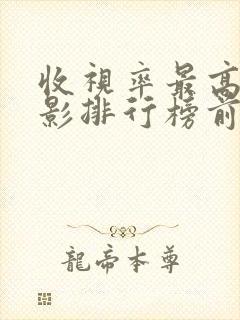 收視率最高
影排行榜前
龍帝本尊